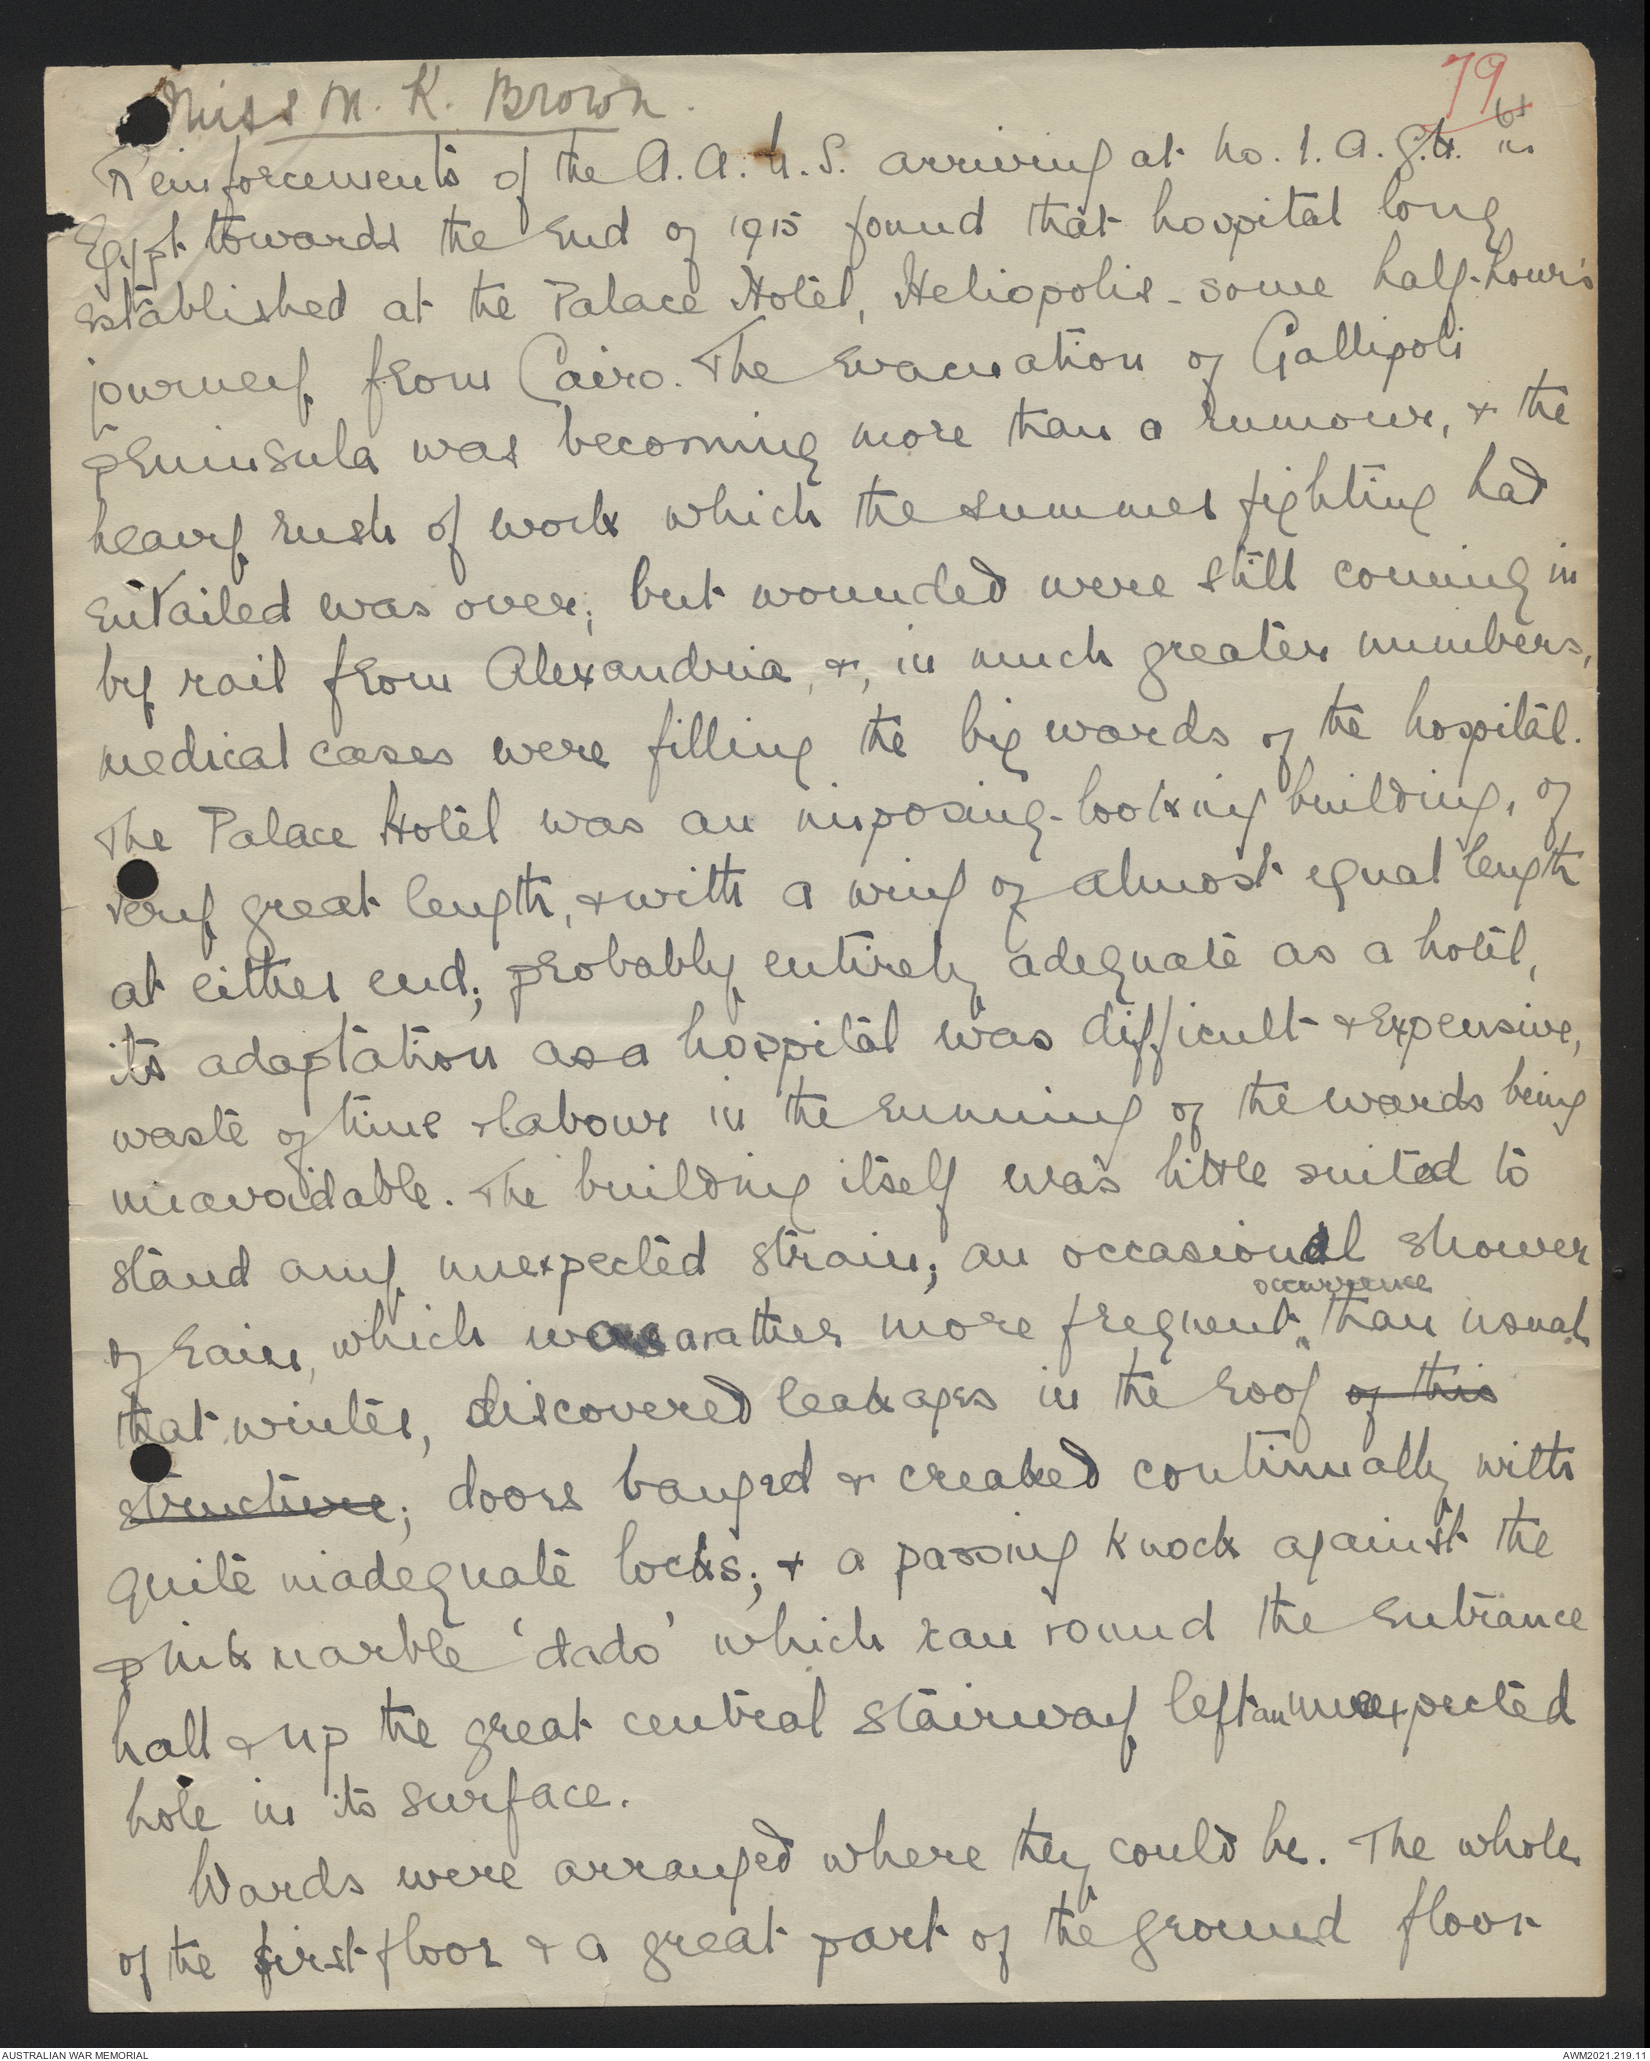 Miss M. K. Brown.
79
Reinforcements of the A.A.N.S. arriving at No. 1. A.G.H. in
Egypt towards the end of 1915 found that hospital long
established at the Palace Hotel, Heliopolis - some half-hour's
journey from Cairo. The evacuation of Gallipoli
peninsula was becoming more than a rumour, & the
heavy rush of work which the summer fighting had
entailed was over; but wounded were still coming in
by rail from Alexandria, &, in much greater numbers,
medical cases were filling the big wards of the hospital.
The Palace Hotel was an imposing-looking building, of
very great length, & with a wing of almost equal length
at either end; probably entirely adequate as a hotel,
its adaptation as a hospital was difficult & expensive,
waste of time & labour in the running of the wards being
unavoidable. The building itself was little suited to
stand any unexpected strain; an occasional shower
of rain, which was a rather more frequent occurrence than usual
that winter, discovered leakages in the roof of this
structure; doors banged & creaked continually with
quite inadequate locks; & a passing knock against the
pink marble 'dado' which ran round the entrance
hall & up the great central stairway left an unexpected
hole in its surface.
Wards were arranged where they could be. The whole
of the first floor & a great part of the ground floor
AUSTRALIAN WAR MEMORIAL
AWM2021.219.11